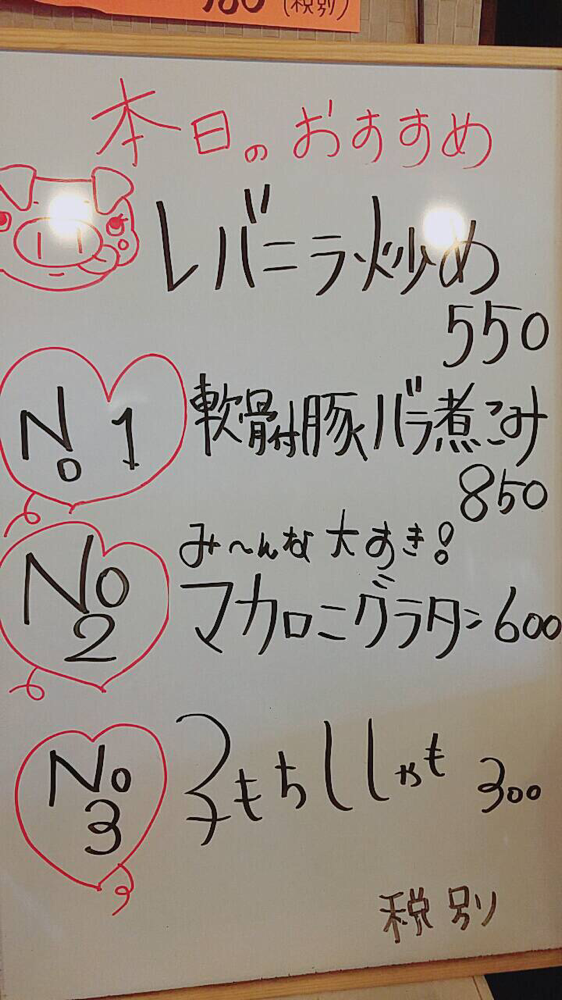 (税別)
本日のおすすめ
レバニラ炒め
550
No 1
軟骨付豚バラ煮こみ
850
No 2
み〜んな大すき!
マカロニグラタン 600
No 3
子もちししゃも 300
税別